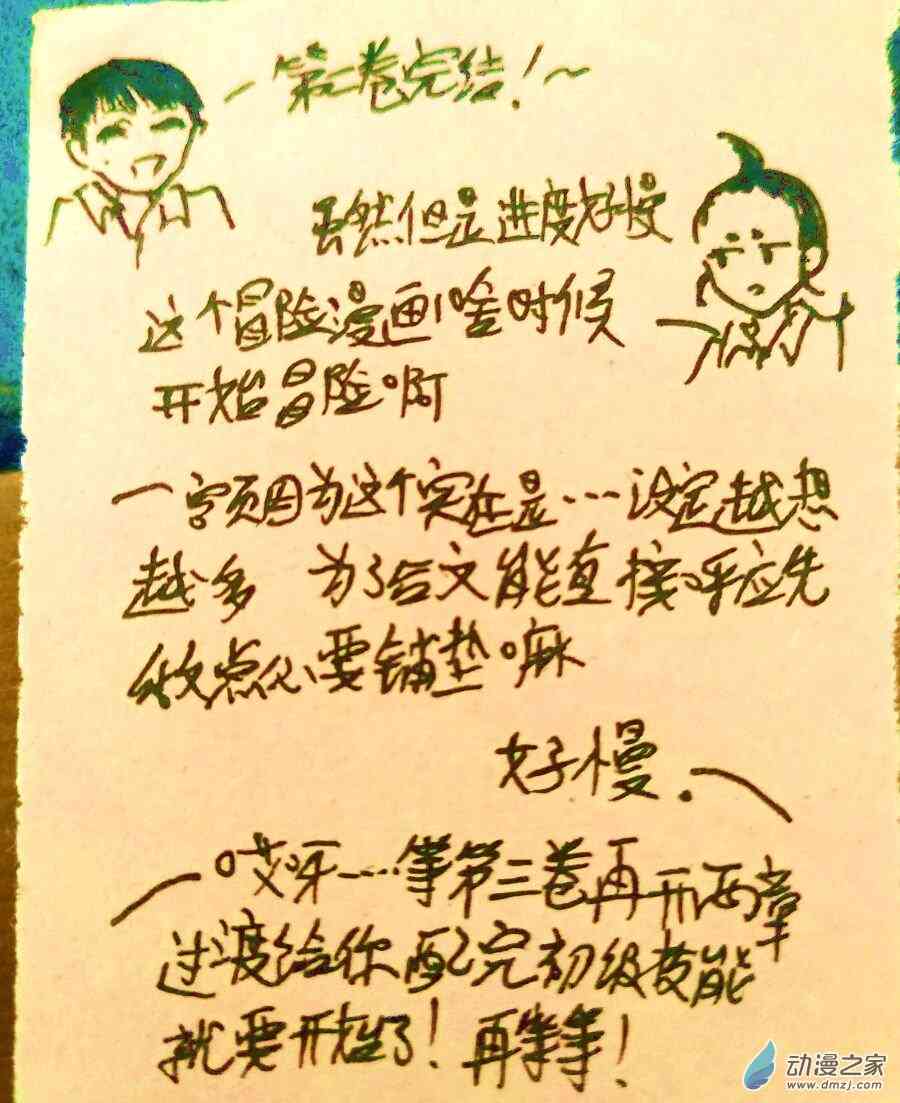 第二卷完结！～
虽然但是进度好慢
这个冒险漫画啥时候
开始冒险啊
因为这个实在是……设定越想
越多 为了后文能直接呼应先
做点必要铺垫嘛
好慢.
哎呀……等第三卷再开两章
过渡给你配完初级技能
就要开始了！再等等！
动漫之家
www.dmzj.com